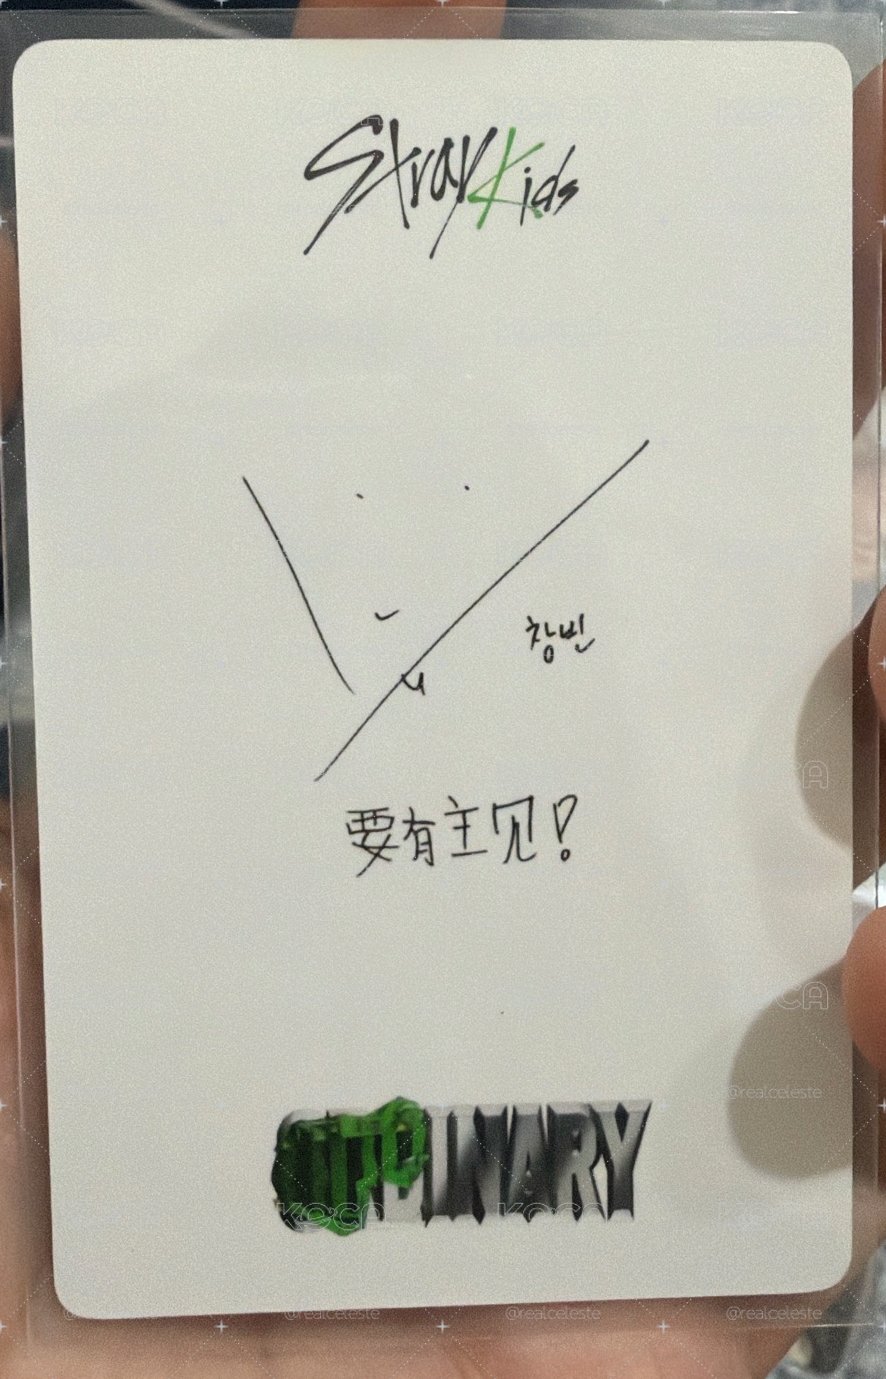 Stray Kids
창빈
要有主见!
ODDINARY
KOCA
KOCA
@realceleste
@realceleste
@realceleste
@realceleste